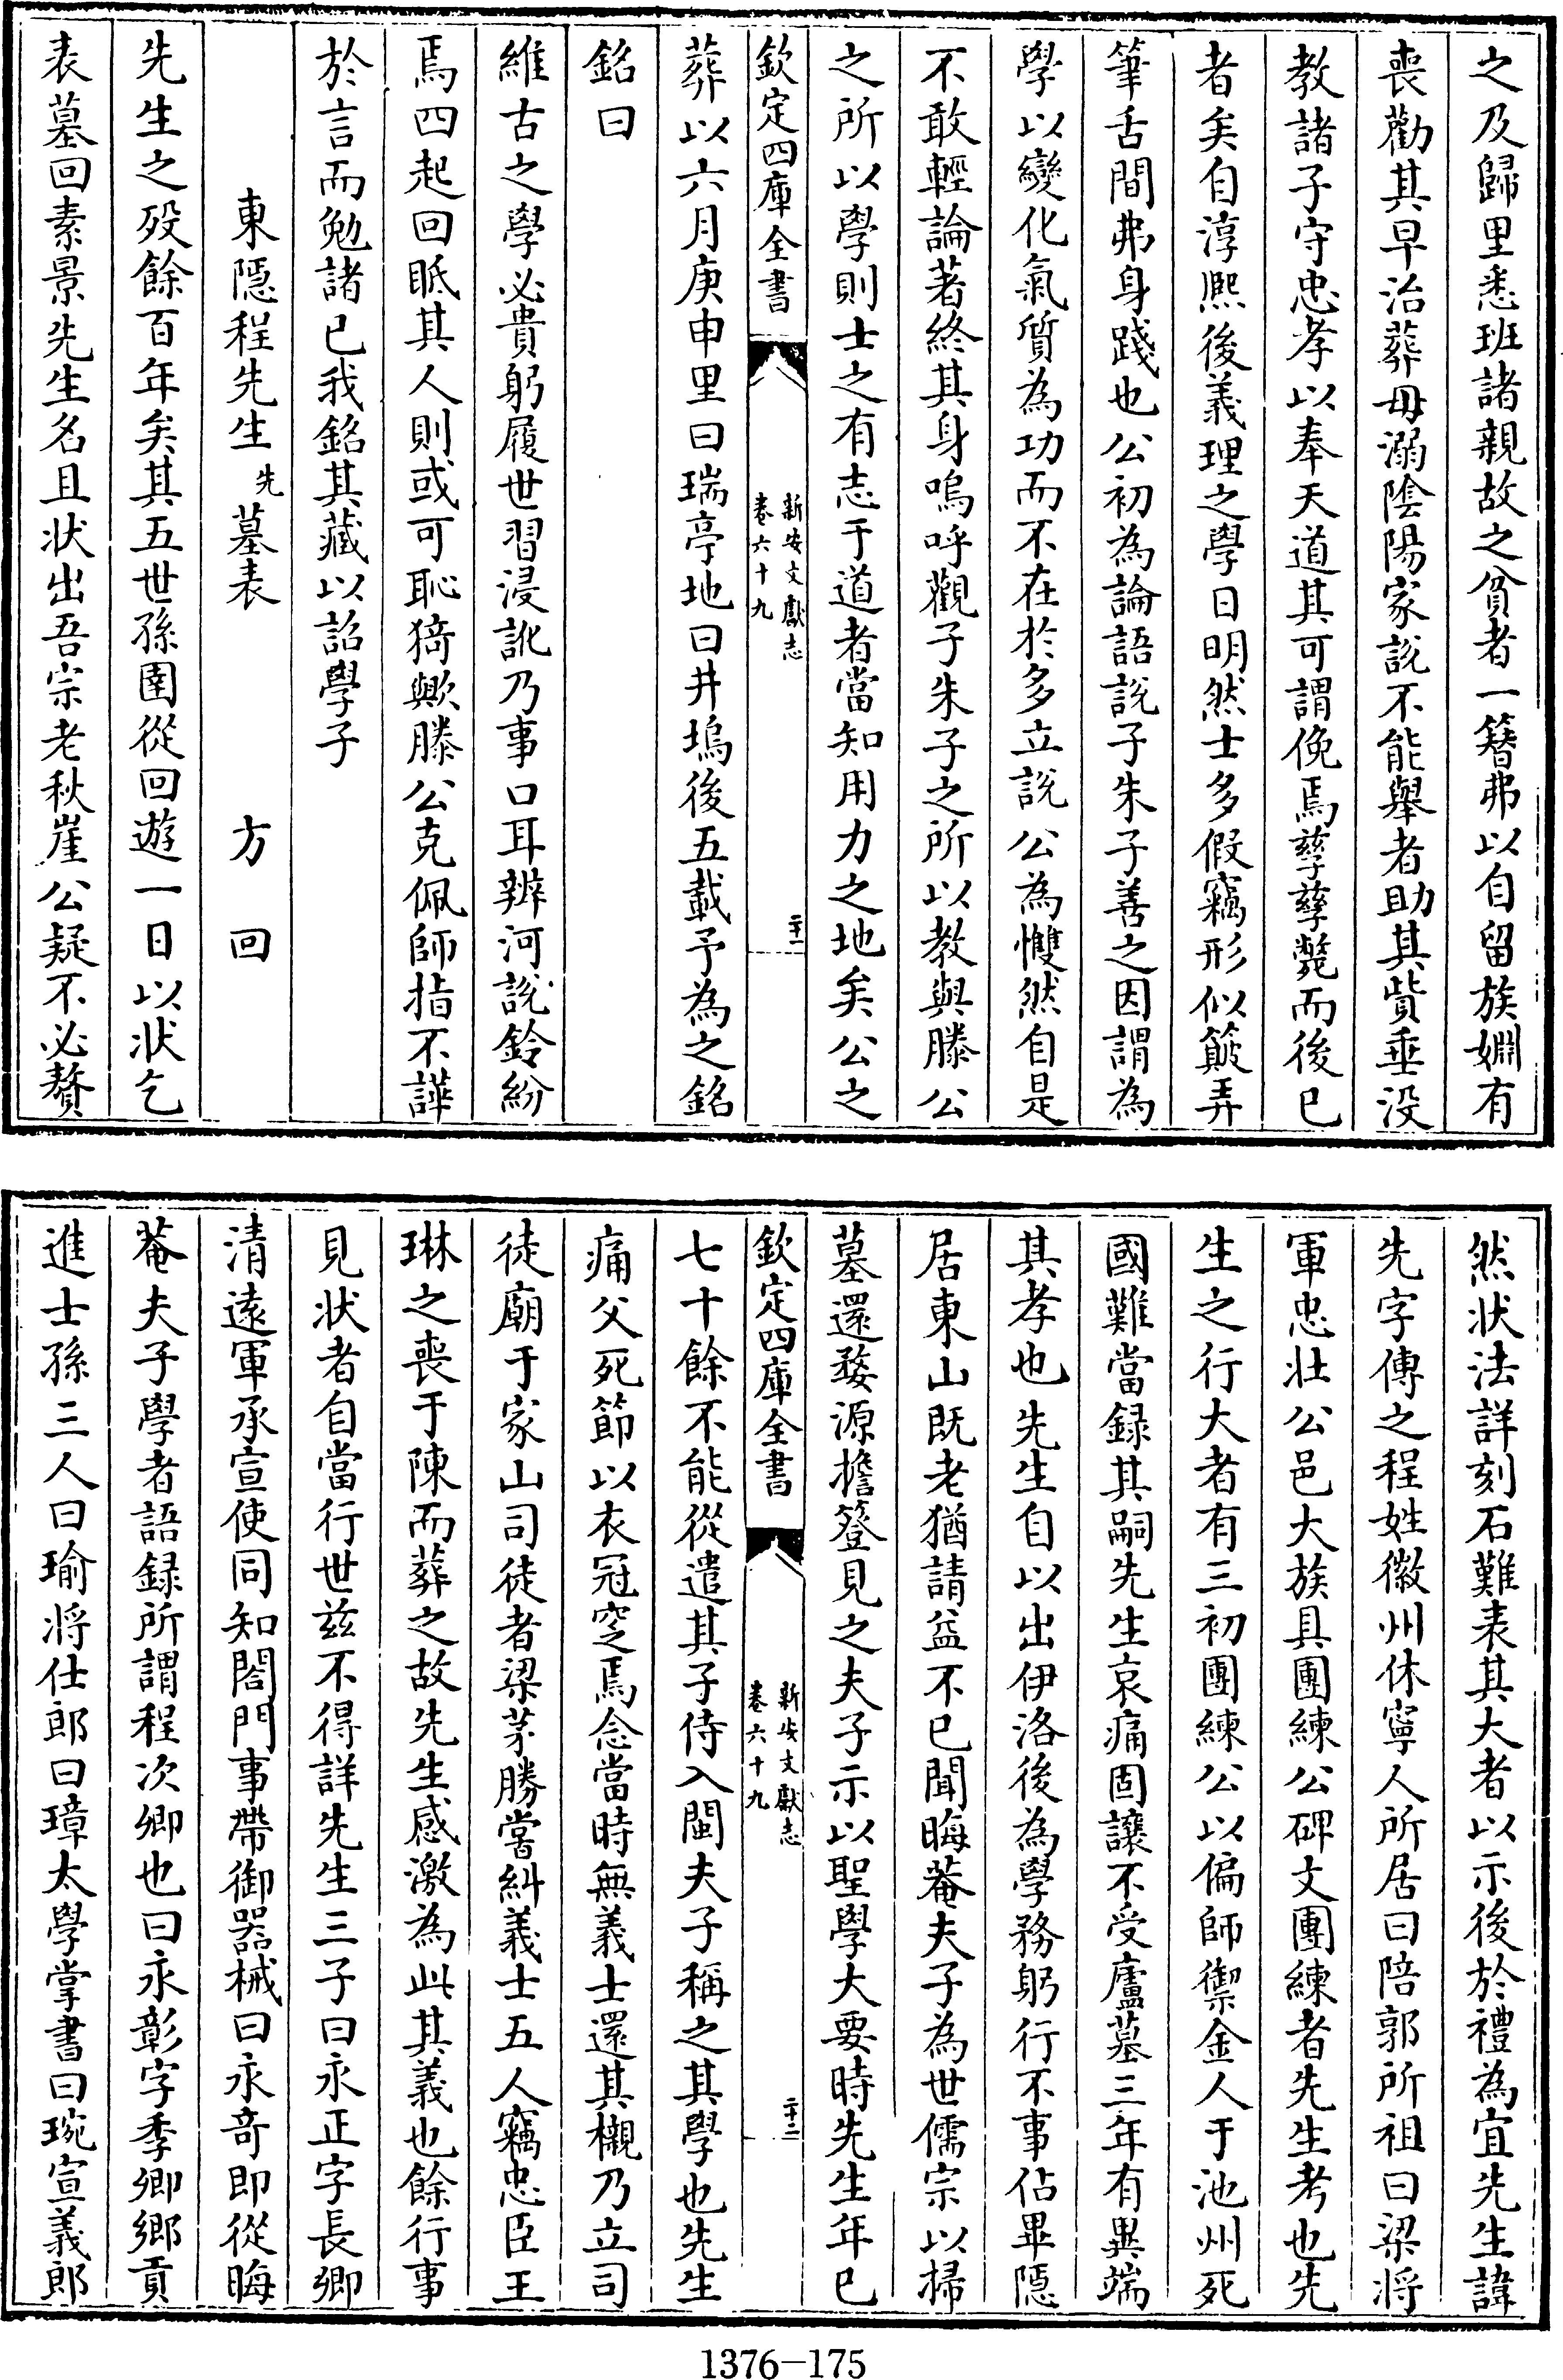 之及歸里悉班諸親故之貧者一簮弗以自留族婣有
喪勸其早治葬毋溺陰陽家說不能舉者助其貲垂没
教諸子守忠孝以奉天道其可謂俛焉孳孳斃而後已
者矣自淳熙後義理之學日明然士多假竊形似簸弄
筆舌間弗身踐也公初為論語說子朱子善之因謂為
學以變化氣質為功而不在於多立說公為㦬然自是
不敢輕論著終其身嗚呼觀子朱子之所以教與滕公
之所以學則士之有志于道者當知用力之地矣公之
欽定四庫全書
新安文獻志
卷六十九
二十一
葬以六月庚申里曰瑞亭地曰井塢後五載予為之銘
銘曰
維古之學必貴躬履世習浸訛乃事口耳辨河說鈴紛
焉四起回眂其人則或可恥猗歟滕公克佩師指不譁
於言而勉諸已我銘其藏以詔學子
東隱程先生先墓表 方回
先生之歿餘百年矣其五世孫圉從回遊一日以狀乞
表墓回素景先生名且状出吾宗老秋崖公疑不必贅
然状法詳刻石難表其大者以示後於禮為宜先生諱
先字傳之程姓徽州休寧人所居曰陪郭所祖曰梁將
軍忠壯公邑大族具團練公碑文團練者先生考也先
生之行大者有三初團練公以偏師禦金人于池州死
國難當録其嗣先生哀痛固讓不受廬墓三年有異端
其孝也先生自以出伊洛後為學務躬行不事佔畢隱
居東山既老猶請益不已聞晦菴夫子為世儒宗以掃
墓還婺源擔簦見之夫子示以聖學大要時先生年已
欽定四庫全書
新安文獻志
卷六十九
二十二
七十餘不能從遣其子侍入閩夫子稱之其學也先生
痛父死節以衣冠窆焉念當時無義士還其櫬乃立司
徒廟于家山司徒者梁茅勝嘗糾義士五人竊忠臣王
琳之喪于陳而葬之故先生感激為此其義也餘行事
見状者自當行世兹不得詳先生三子曰永正字長卿
清逺軍承宣使同知閤門事帶御器械曰永奇即從晦
菴夫子學者語録所謂程次卿也曰永彰字季卿鄉貢
進士孫三人曰瑜將仕郎曰璋太學掌書曰琬宣義郎
1376—175